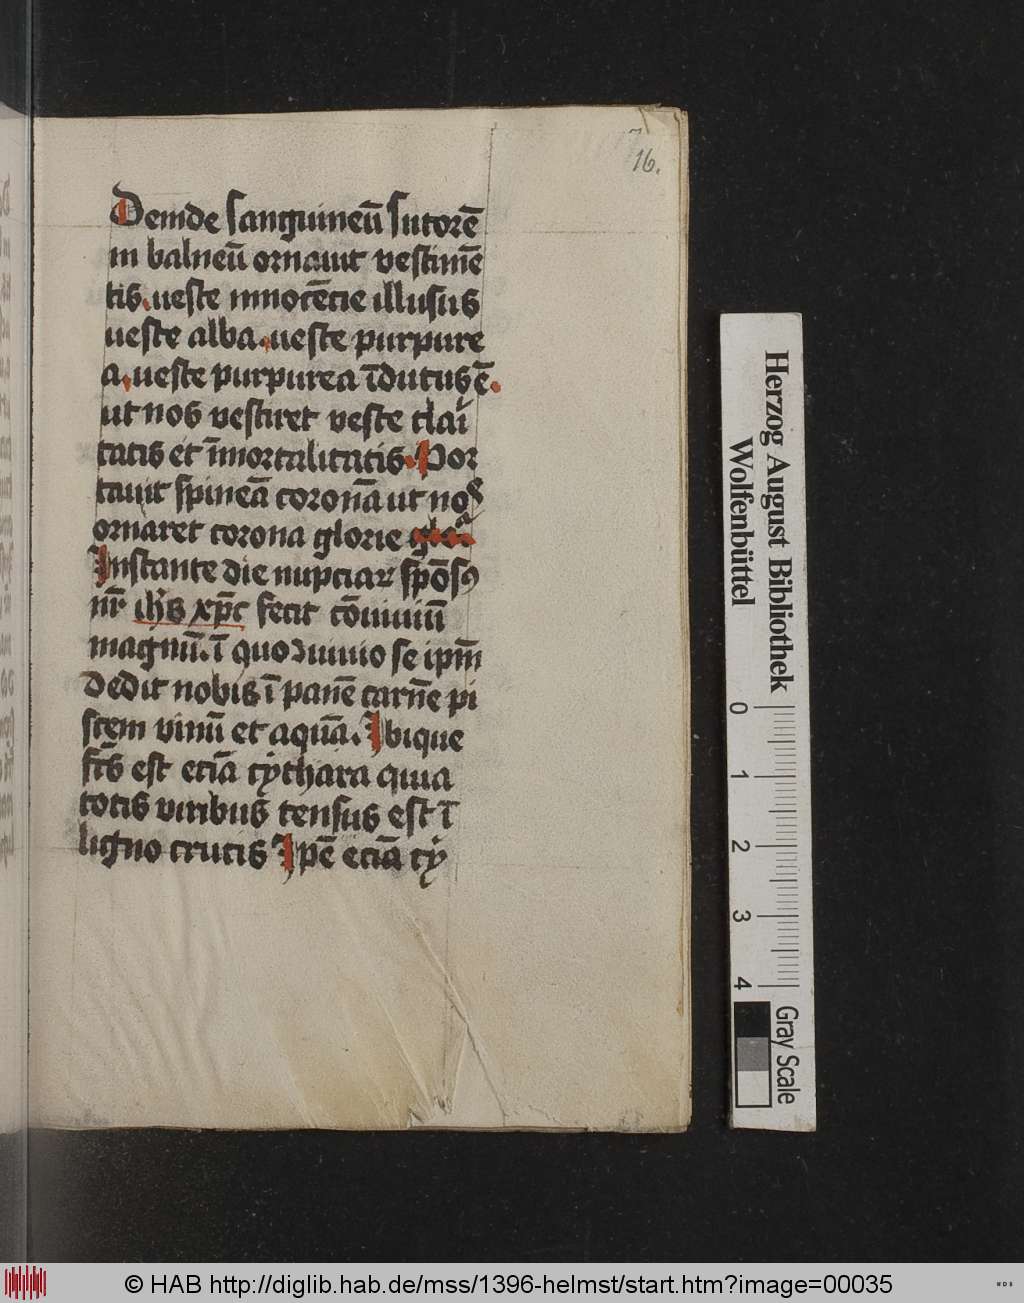 16.
Deinde sanguineū sutorē
in balneū ornauit vestimē
tis. ueste innocēcie illusus
ueste alba. ueste purpure
a. ueste purpurea īdutus ē.
ut nos vestiret veste clai
tatis et īmortalitatis. Por
tauit spineā coronā ut nos
ornaret corona glorie
Instante die nupciar spōsꝯ
nr̄ ih̄s xp̄c fecit cōuiuiū
magnū. ī quo ɔuiuio se ipm̄
dedit nobis ī panē carnē pi
scem vinū et aquā. Ibique
fc̄s est eciā cythara quia
totis viribus tensus est ī
ligno crucis Ipē eciā cy
Herzog August Bibliothek
Wolfenbüttel
0 1 2 3 4
Gray Scale
© HAB http://diglib.hab.de/mss/1396-helmst/start.htm?image=00035